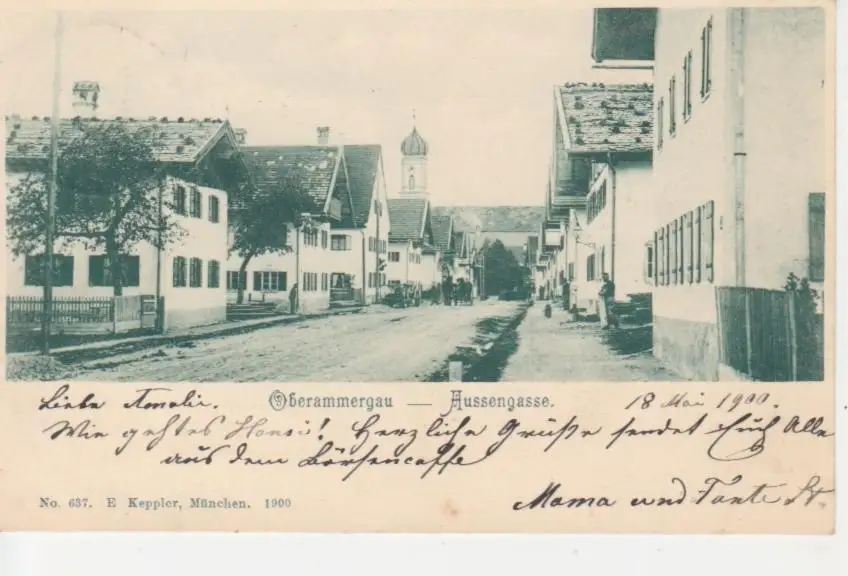 Liebe Amalie.
Oberammergau — Aussengasse.
18 Mai 1900.
Wie geht es Hansi! Herzliche Grüße sendet Euch Alle
aus dem Börsencaffe
Mama und Tante St.
No. 637. E Keppler, München. 1900